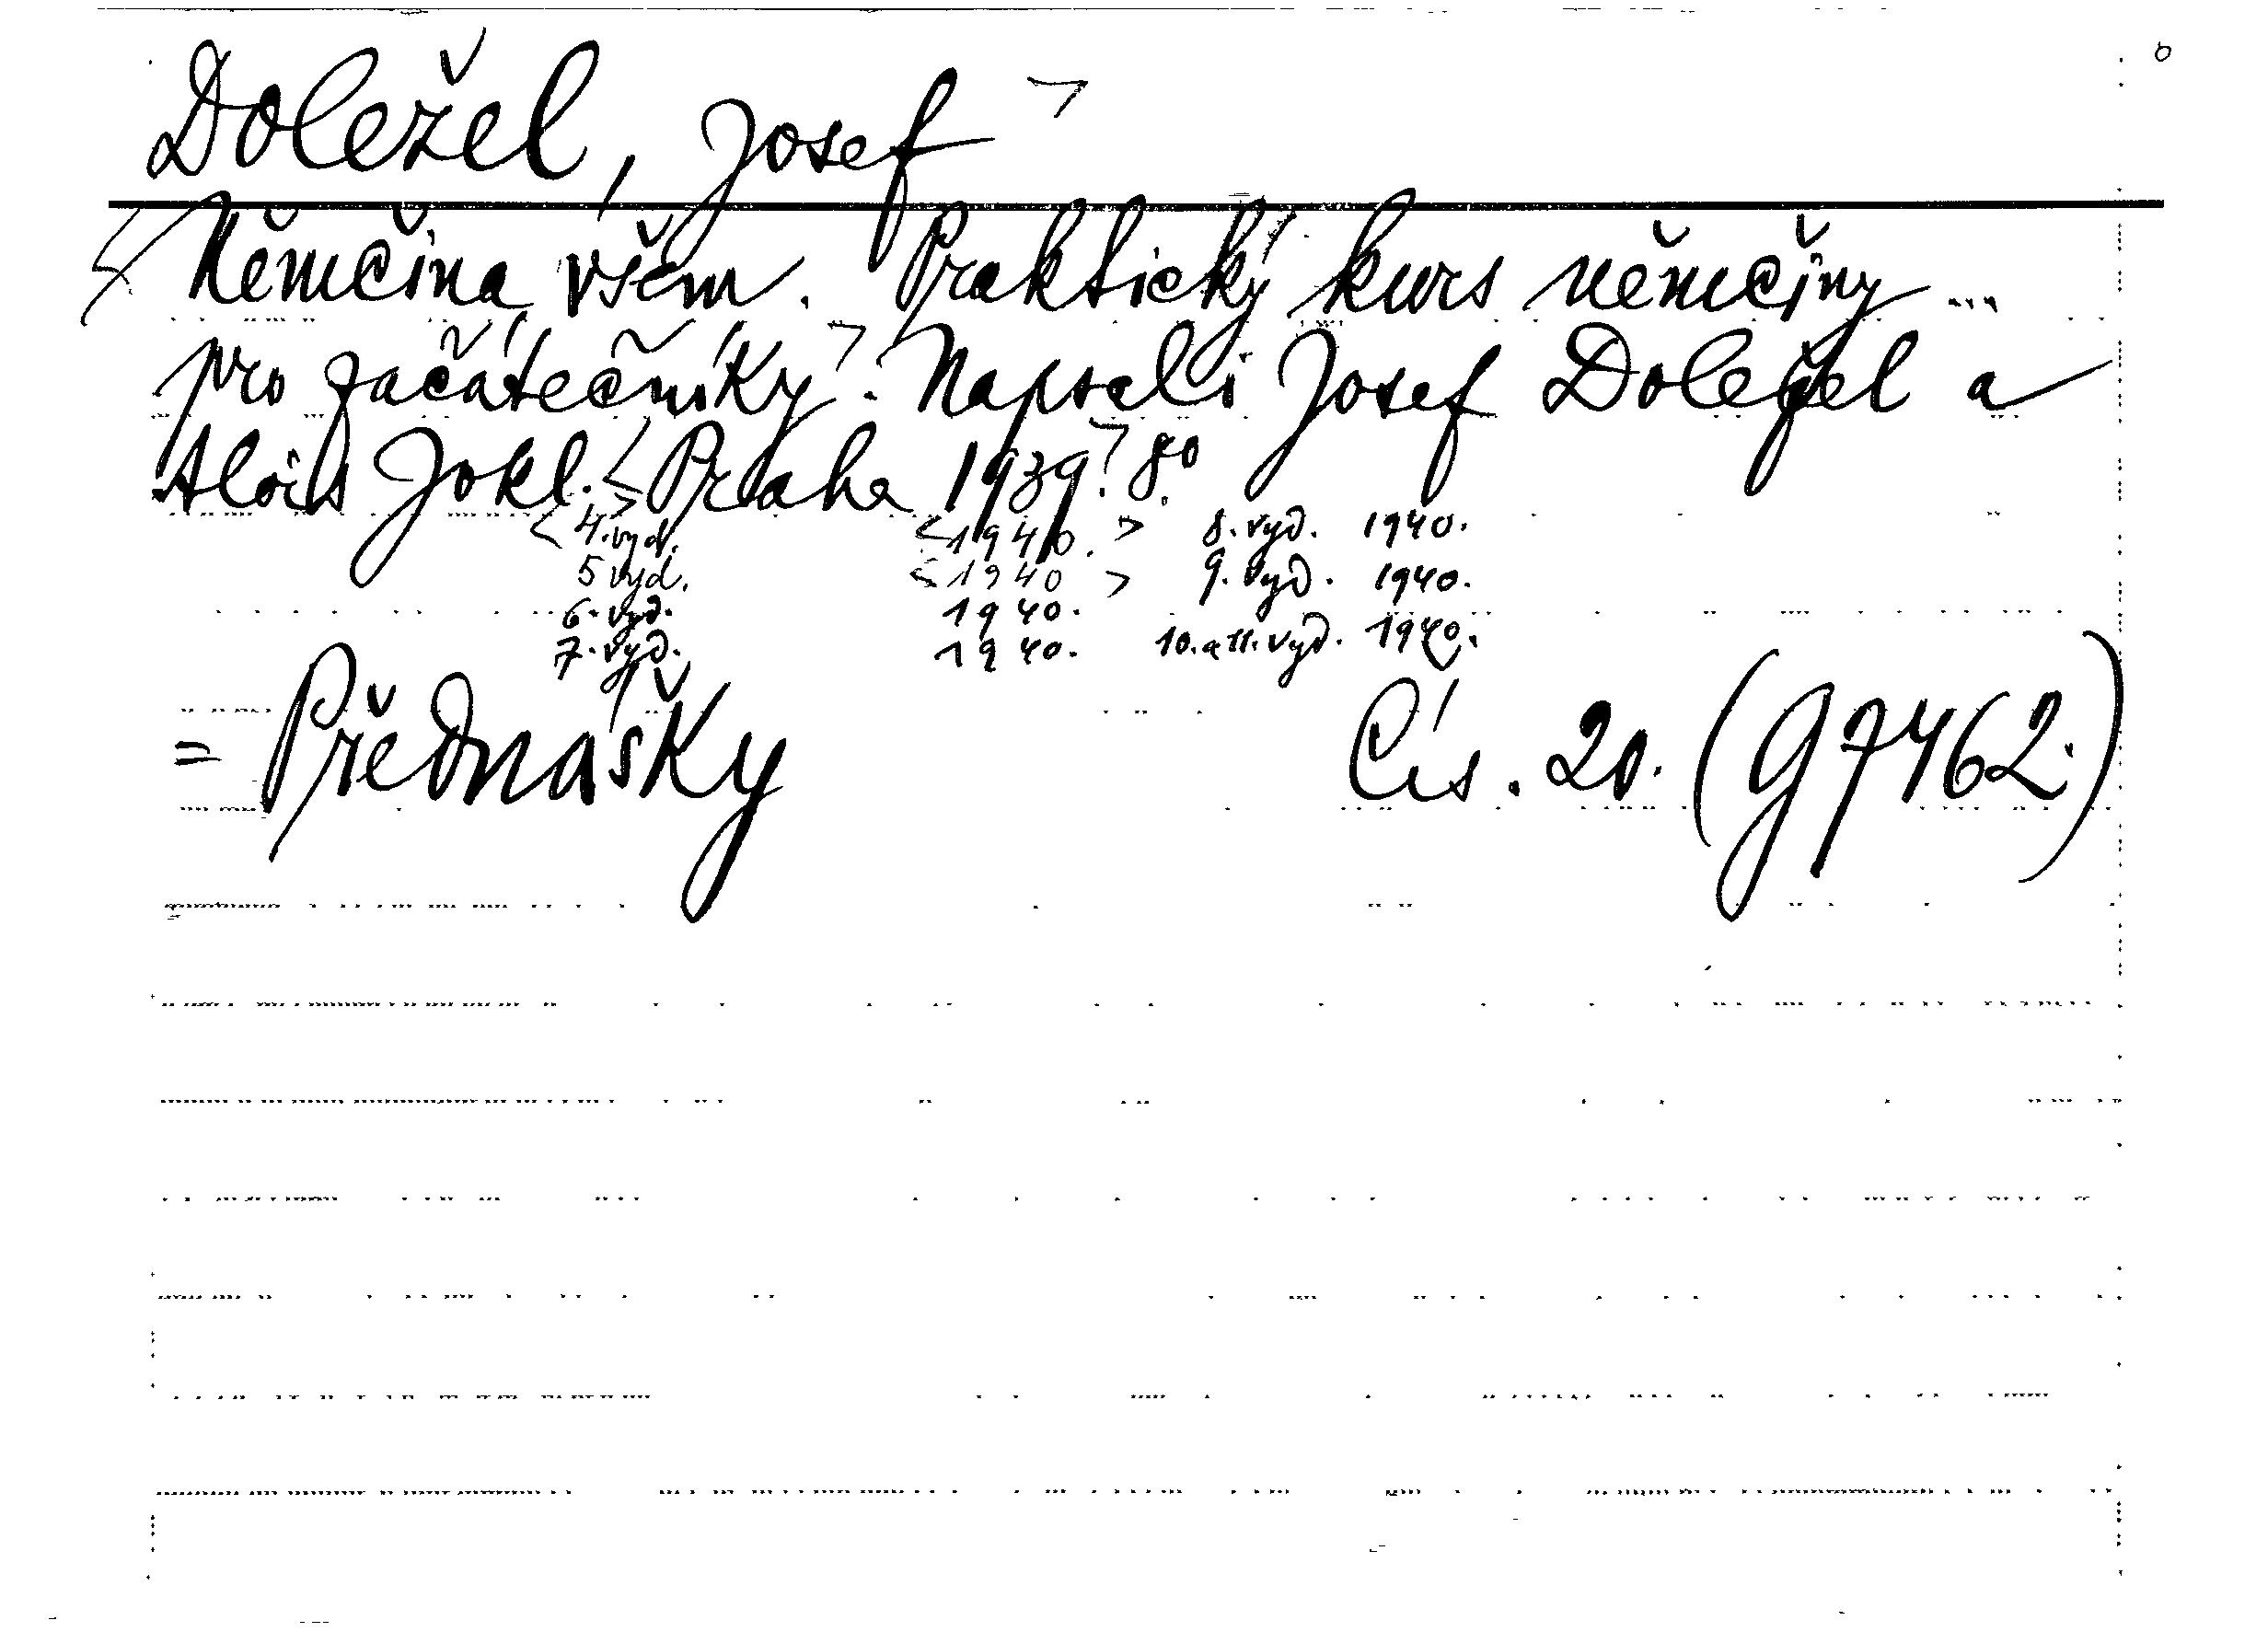 Doležel, Josef >
< Němčina všem. Praktický kurs němčiny ...
pro začátečníky >. Napsali Josef Doležel a
Alois Jokl. < Praha 1939. > 8o.
< 4. vyd. > < 1940. > 8. vyd. 1940.
5 vyd. < 1940 > 9. vyd. 1940.
6. vyd. 1940.
7. vyd. 1940. 10. a 11. vyd. 1940.
= Přednášky Čís. 20. (9 7462.)